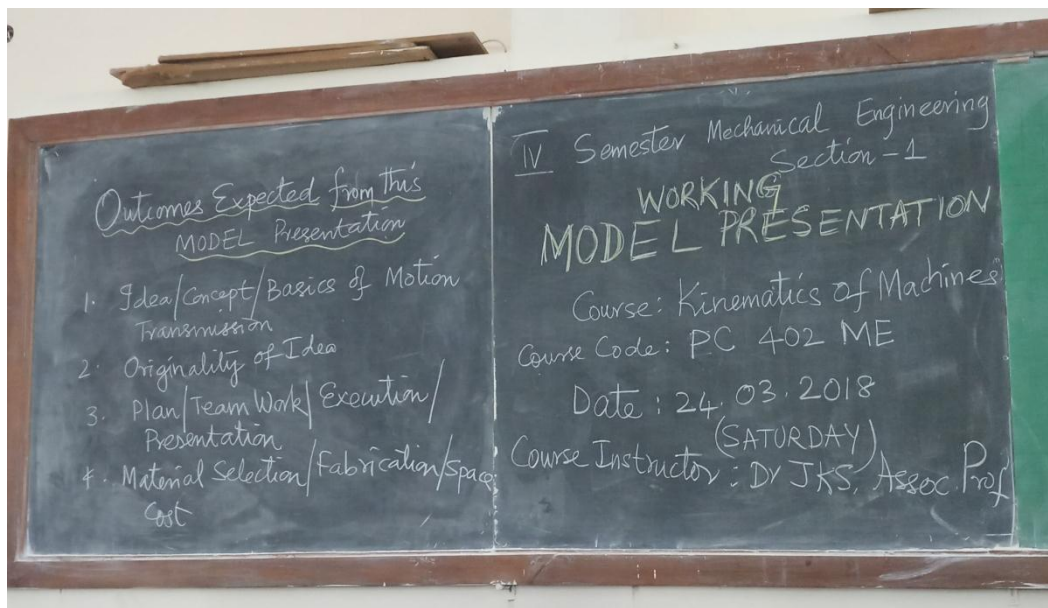 Outcomes Expected from this
MODEL Presentation
1. Idea/Concept/Basics of Motion
Transmission
2. Originality of Idea
3. Plan/Team Work/Execution/
Presentation
4. Material Selection/Fabrication/Space
Cost
IV Semester Mechanical Engineering
Section-1
WORKING
MODEL PRESENTATION
Course: Kinematics of Machines
Course Code: PC 402 ME
Date: 24.03.2018
(SATURDAY)
Course Instructor: Dr JKS, Assoc. Prof